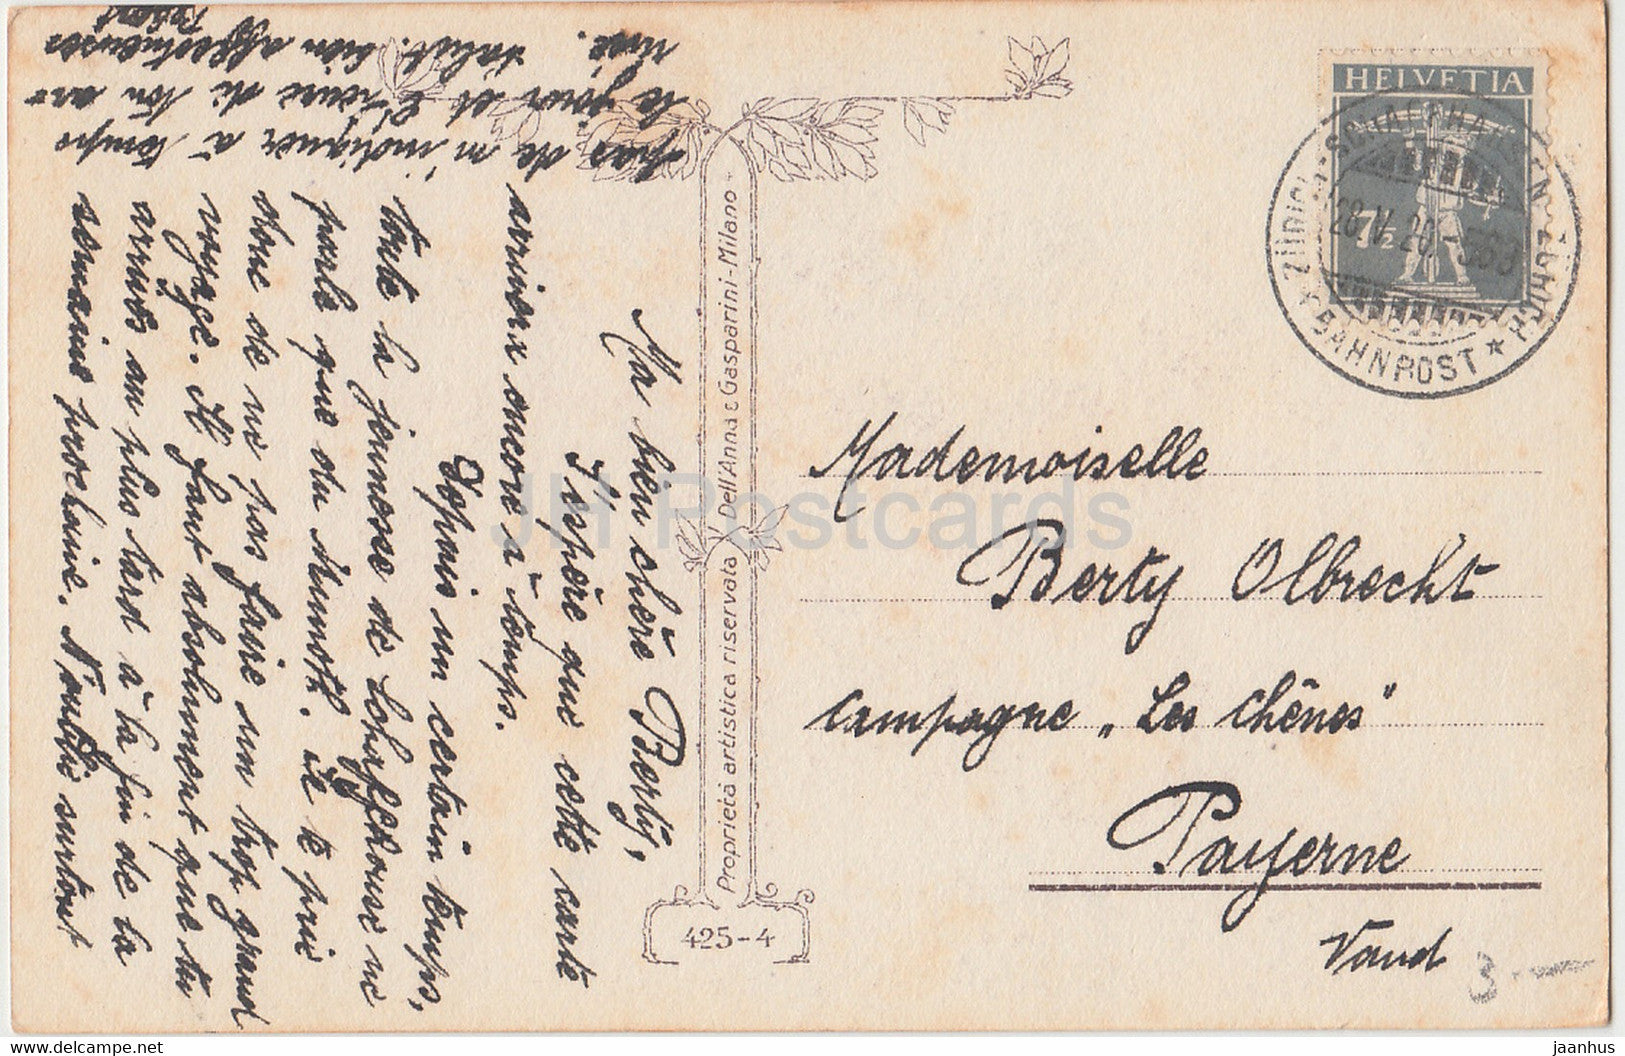 Ma bien chère Berty,
J'espère que cette carte
arrivera encore à temps.
Depuis un certain temps,
toute la jeunesse de Schaffhouse ne
parle que du Munoth. Je te prie
donc de ne pas faire un trop grand
voyage. Il faut absolument que tu
arrives au plus tard à la fin de la
semaine prochaine. N'oublie surtout
pas de m'indiquer à temps
le jour et l'heure de ton ar-
rivée.
Salut. bien affectueuses
Robert
Proprietà artistica riservata Dell'Anna e Gasparini-Milano
425-4
HELVETIA
7½
ZÜRICH-SCHAFFHAUSEN-ZÜRICH
28.IV.20
BAHNPOST
Mademoiselle
Berty Olbrecht
campagne „Les chênes"
Payerne
Vaud
3.—
JH Postcards
delcampe.net
jaanhus